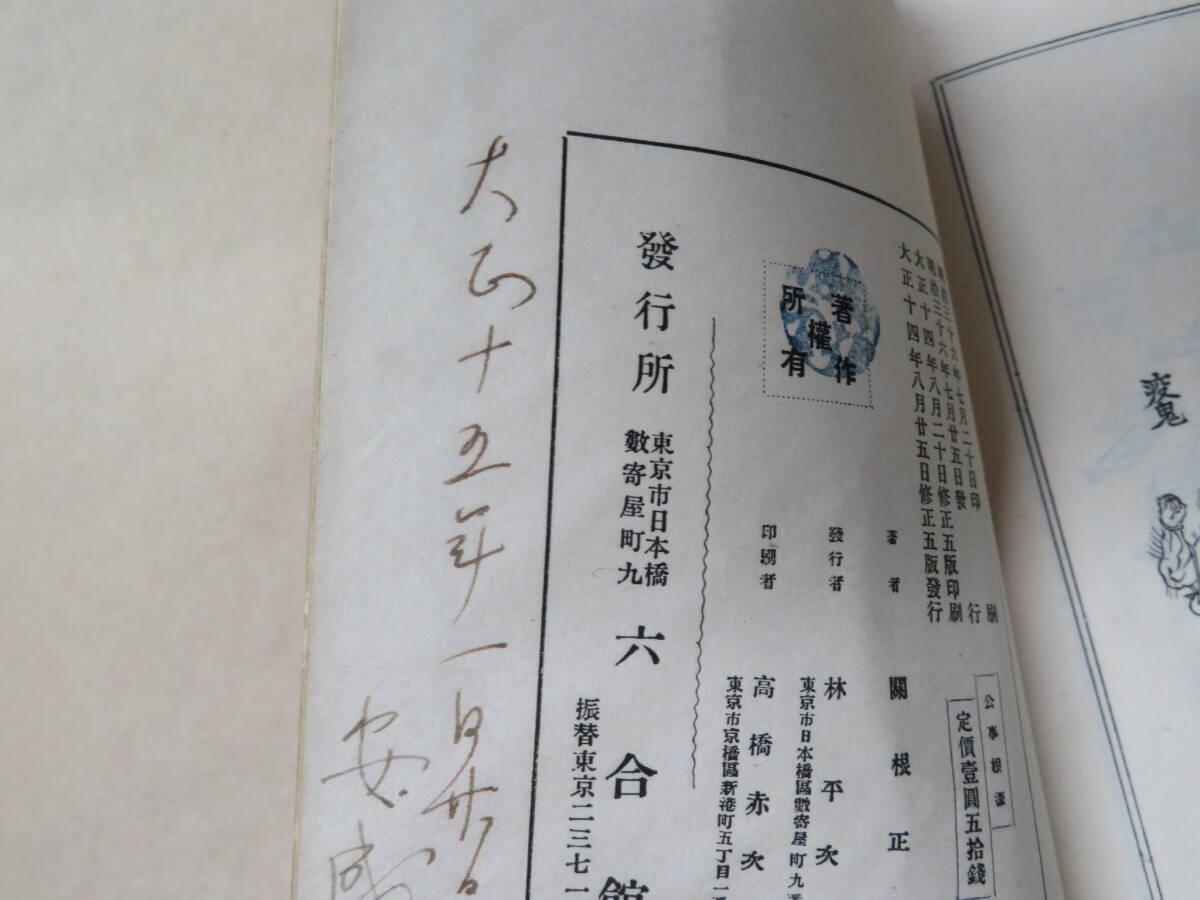 疫鬼
明治三十六年七月二十日印刷
明治三十六年七月廿五日發行
大正十四年八月二十日修正五版印刷
大正十四年八月廿五日修正五版發行
公事根源
定價壹圓五拾錢
著作權所有
著者 關根正
發行者 林平次
東京市日本橋區數寄屋町九
印刷者 高橋赤次
東京市京橋區新港町五丁目一
發行所
東京市日本橋
數寄屋町九
六合館
振替東京二三七一
大正十五年一月廿八日
安